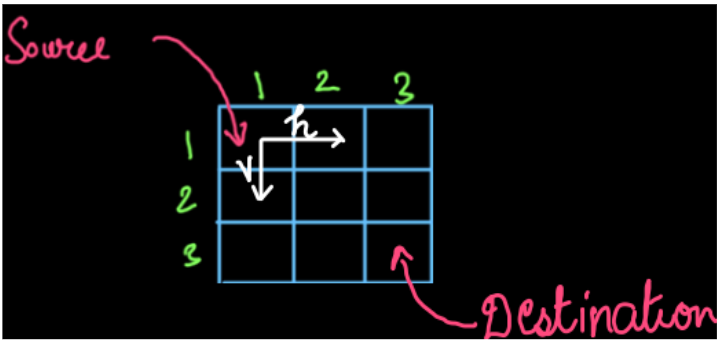 Source
1 2 3
h
1
V
2
3
Destination